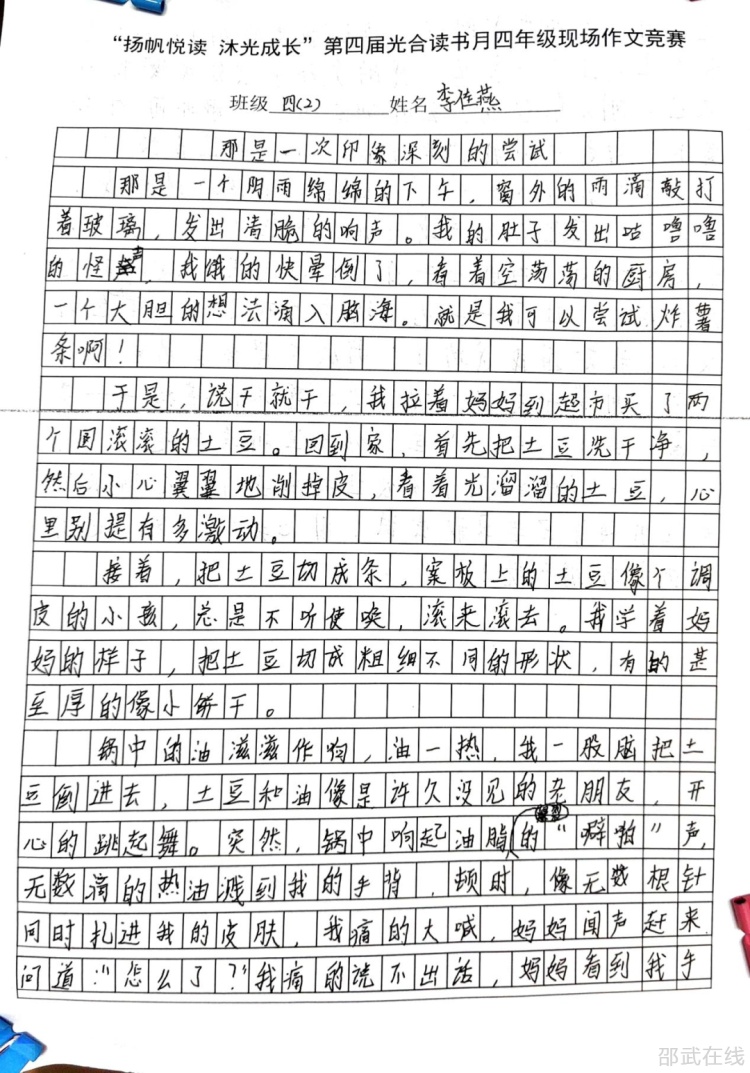 “扬帆悦读 沐光成长”第四届光合读书月四年级现场作文竞赛
班级 四(2) 姓名 李佳燕
那是一次印象深刻的尝试
那是一个阴雨绵绵的下午，窗外的雨滴敲打
着玻璃，发出清脆的响声。我的肚子发出咕噜噜
的怪声，我饿的快晕倒了，看着空荡荡的厨房，
一个大胆的想法涌入脑海。就是我可以尝试炸薯
条啊！
于是，说干就干，我拉着妈妈到超市买了两
个圆滚滚的土豆。回到家，首先把土豆洗干净，
然后小心翼翼地削掉皮，看着光溜溜的土豆，心
里别提有多激动。
接着，把土豆切成条，案板上的土豆像个调
皮的小孩，总是不听使唤，滚来滚去。我学着妈
妈的样子，把土豆切成粗细不同的形状，有的甚
至厚的像小饼干。
锅中的油滋滋作响，油一热，我一股脑把土
豆倒进去，土豆和油像是许久没见的老朋友，开
心的跳起舞。突然，锅中响起油脂的“噼啪”声，
无数滴的热油溅到我的手背，顿时，像无数根针
同时扎进我的皮肤，我痛的大喊，妈妈闻声赶来
问道：“怎么了？”我痛的说不出话，妈妈看到我手
邵武在线